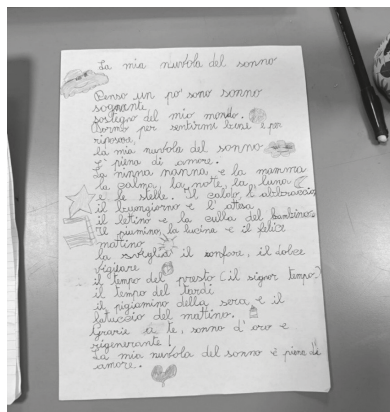 La mia nuvola del sonno
Penso un po' sono sonno
sognante,
sostegno del mio mondo.
Dormo per sentirmi bene e per
riposare,
la mia nuvola del sonno
è piena di amore.
La ninna nanna e la mamma
la calma, la notte, la luna
e le stelle. Il caldo, l'abbraccio
il buongiorno e l'attesa
il lettino e la culla del bambino
il piumino, la lucina e il felice
mattino
la sveglia, il sonfare, il dolce
vegitare
il tempo del presto (il signor tempo)
il tempo del tardi
il pigiamino della sera e il
latuccio del mattino.
Grazie a te, sonno d'oro e
rigenerante!
La mia nuvola del sonno è piena di
amore.